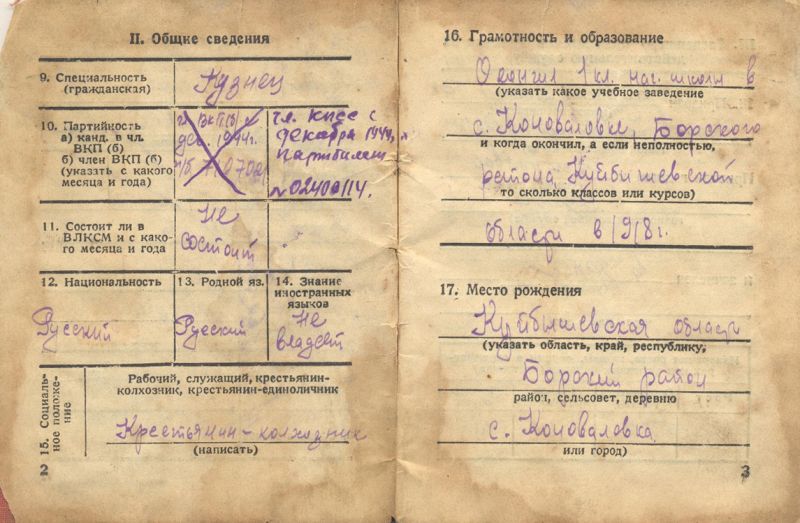 II. Общие сведения
9. Специальность
(гражданская)
Кузнец
10. Партийность
а) канд. в чл.
ВКП (б)
б) член ВКП (б)
(указать с какого
месяца и года)
ВКП(б)
дек. 1944г.
п/б
чл. КПСС с
декабря 1944г.
Партбилет
№ 02400114.
11. Состоит ли в
ВЛКСМ и с како-
го месяца и года
Не
состоит
12. Национальность
Русский
13. Родной яз.
Русский
14. Знание
иностранных
языков
Не
владеет
15. Социаль-
ное положе-
ние
Рабочий, служащий, крестьянин-
колхозник, крестьянин-единоличник
Крестьянин-колхозник
(написать)
2
16. Грамотность и образование
Окончил 1 кл. нач. школы в
(указать какое учебное заведение
с. Коноваловке, Борского
и когда окончил, а если неполностью,
района Куйбышевской
то сколько классов или курсов)
области в 1918г.
17. Место рождения
Куйбышевская область
(указать область, край, республику,
Борский район
район, сельсовет, деревню
с. Коноваловка
или город)
3